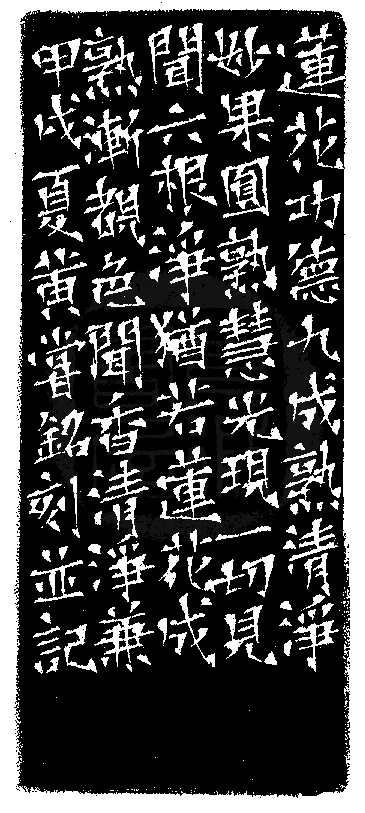 蓮花功德九成熟清淨
妙果圓熟慧光現一切見
聞六根淨猶若蓮花成
熟漸覩色聞香清淨兼
甲戌夏黄嘗銘刻並記